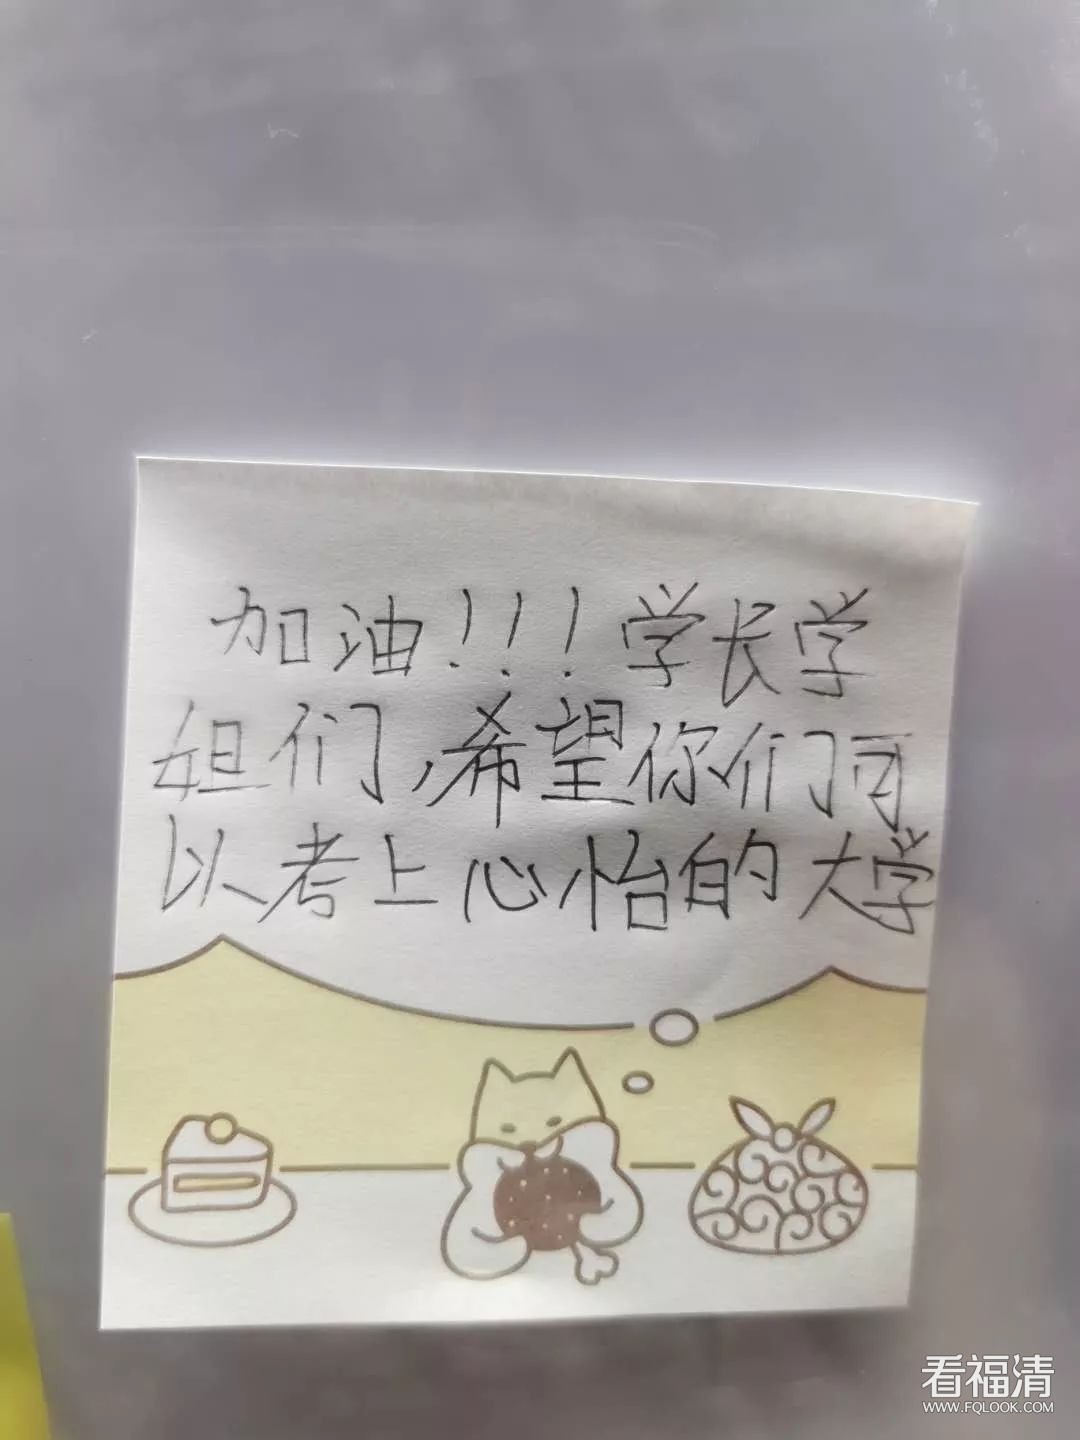 加油!!!学长学
姐们,希望你们可
以考上心怡的大学
看福清
WWW.FQLOOK.COM